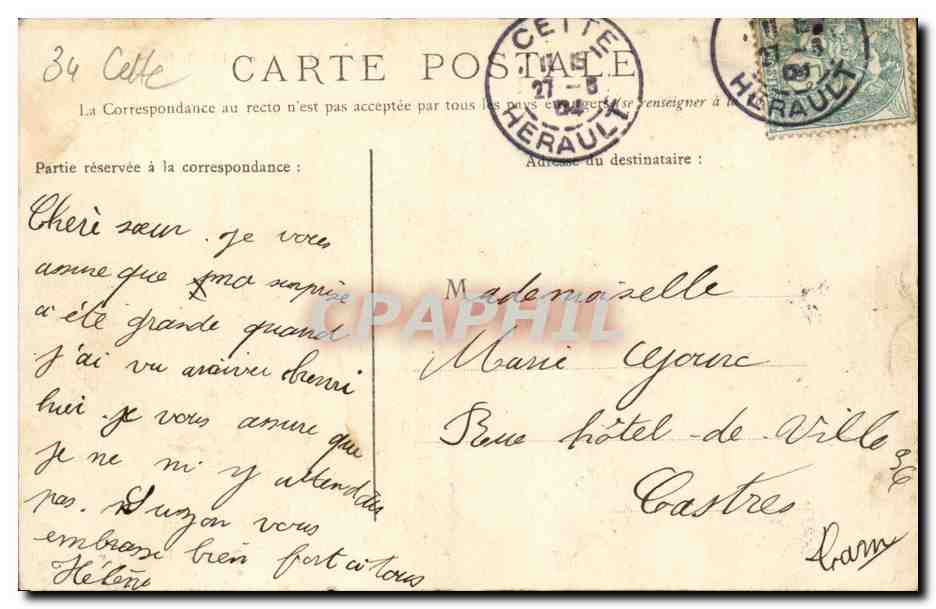 34 Cette
CARTE POSTALE
La Correspondance au recto n'est pas acceptée par tous les pays étrangers (se renseigner à la
CETTE
11 15
27 -8
04
HÉRAULT
HÉRAULT
Partie réservée à la correspondance :
Adresse du destinataire :
Cherè sœur. je vous
assure que ma surprise
a été grande quand
j'ai vu arriver henri
hier. je vous assure que
je ne mi y attendais
pas. Suzon vous
embrasse bien fort a tous
Hélène
Mademoiselle
Marie
Rue hôtel-de-Ville 36
Castres
Tarn
CPAPHIL